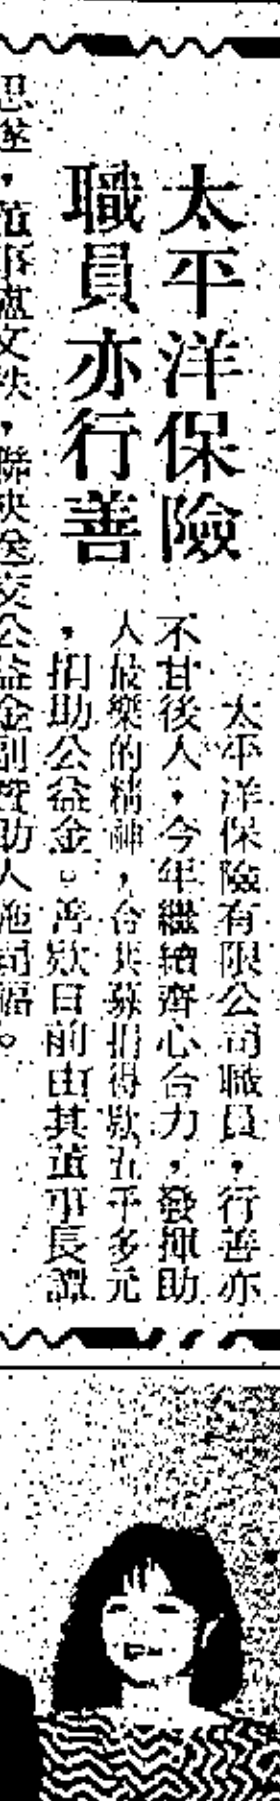 太平洋保險
職員亦行善
太平洋保險有限公司職員，行善亦
不甘後人，今年繼續齊心合力，發揮助
人最樂的精神，合共募捐得款五千多元
，捐助公益金。善款日前由其董事長譚
思遂，董事盧文扶，聯袂送交公益金副贊助人施祠福。